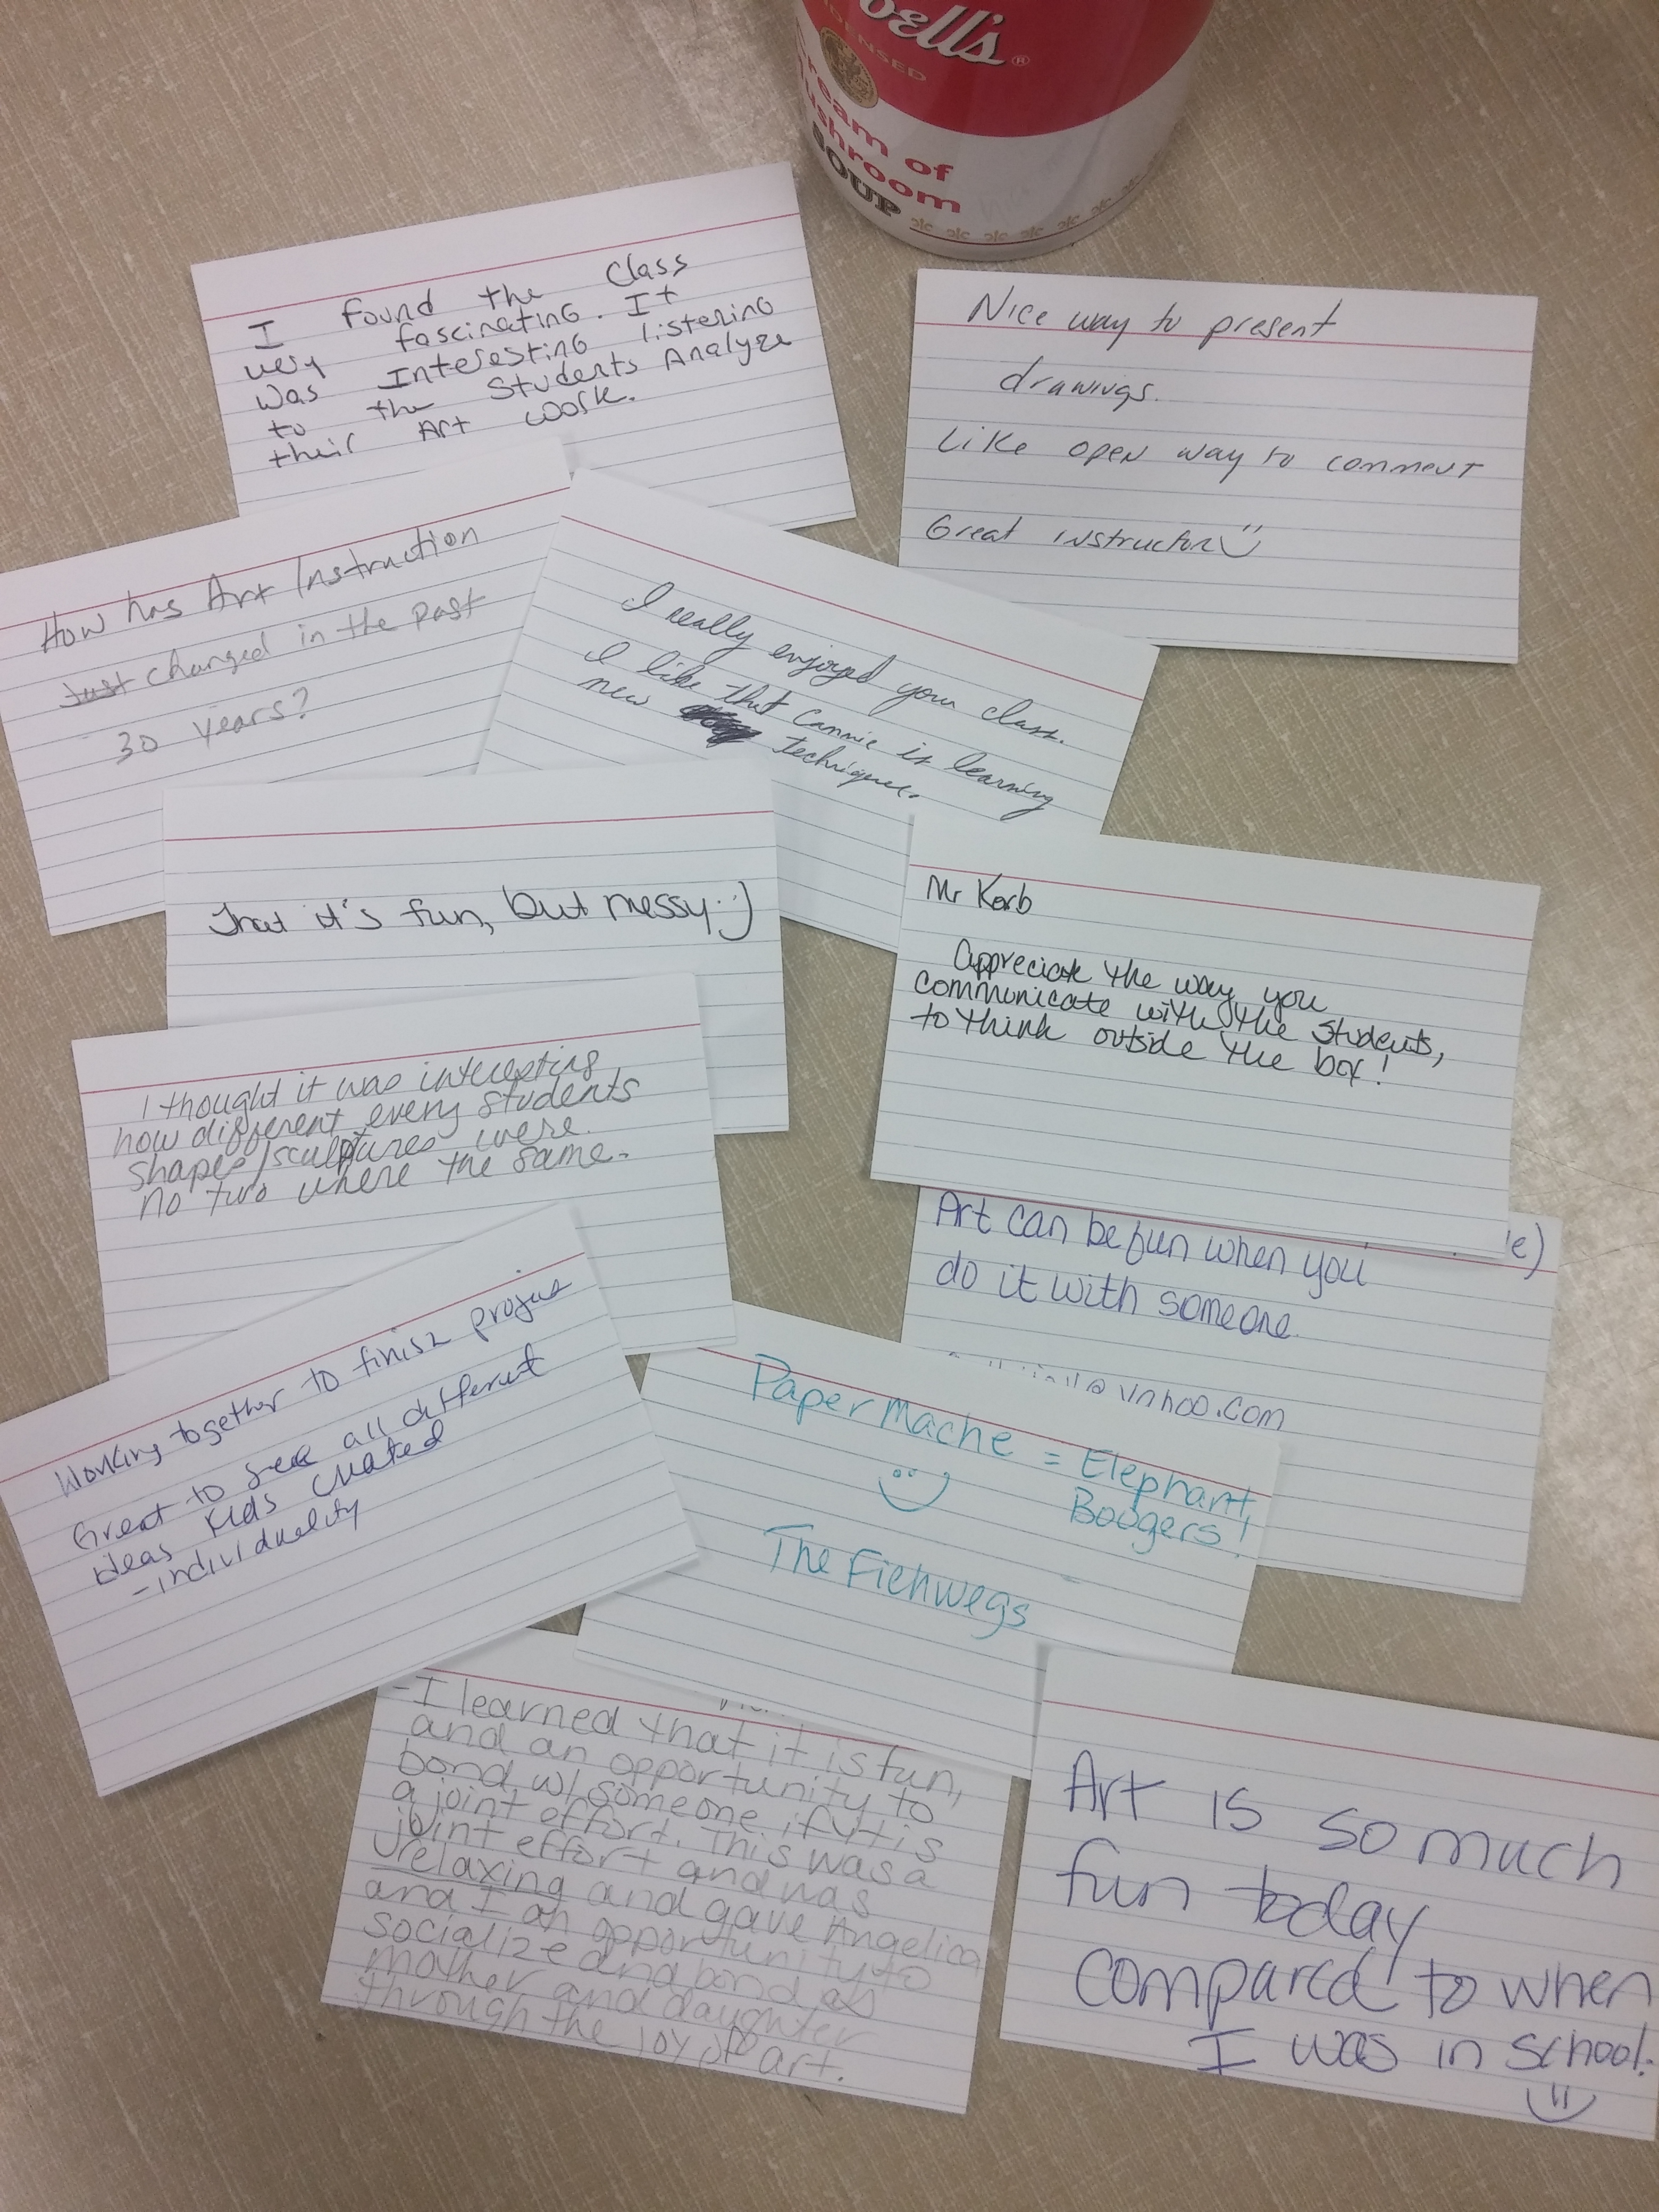 bell's®
DENSED
ream of
ushroom
SOUP
I found the Class
very fascinating. It
was Interesting listening
to the Students Analyze
their Art work.
Nice way to present
drawings.
Like open way to comment
Great instructor
How has Art Instruction
Just changed in the past
30 years?
I really enjoyed your class.
I like that Cannie is learning
new techniques.
That it's fun, but messy :)
Mr Korb
Appreciate the way you
communicate with the students,
to think outside the box!
I thought it was interesting
how different every students
shapes/sculptures were.
no two where the same.
Art can be fun when you
do it with someone.
@yahoo.com
Working together to finish
Great to see all different
ideas kids created
- individuality
Paper Mache = Elephant
Boogers!
The Fiehwegs
- I learned that it is fun,
and an opportunity to
bond w/ someone if it is
a joint effort. This was a
joint effort and was
relaxing and gave Angelica
and I an opportunity to
socialize and bond as
mother and daughter
through the joy of art.
Art is so much
fun today
compared to when
I was in school.